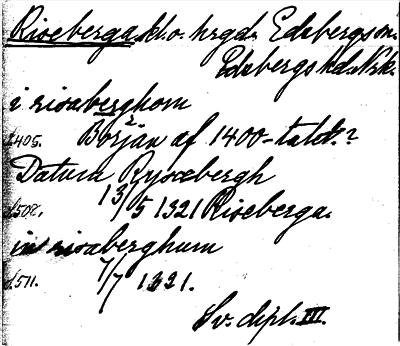 Riseberga kl. o. hrgd. Edsbergs sn.
Edsbergs hd. Nrk.
i risaberghom
s. 405. Början af 1400-talet?
Datum Rysæbergh
s. 508. 13/5 1321 Riseberga.
in risaberghum
s. 511. 7/7 1321.
Sv. dipl. III.